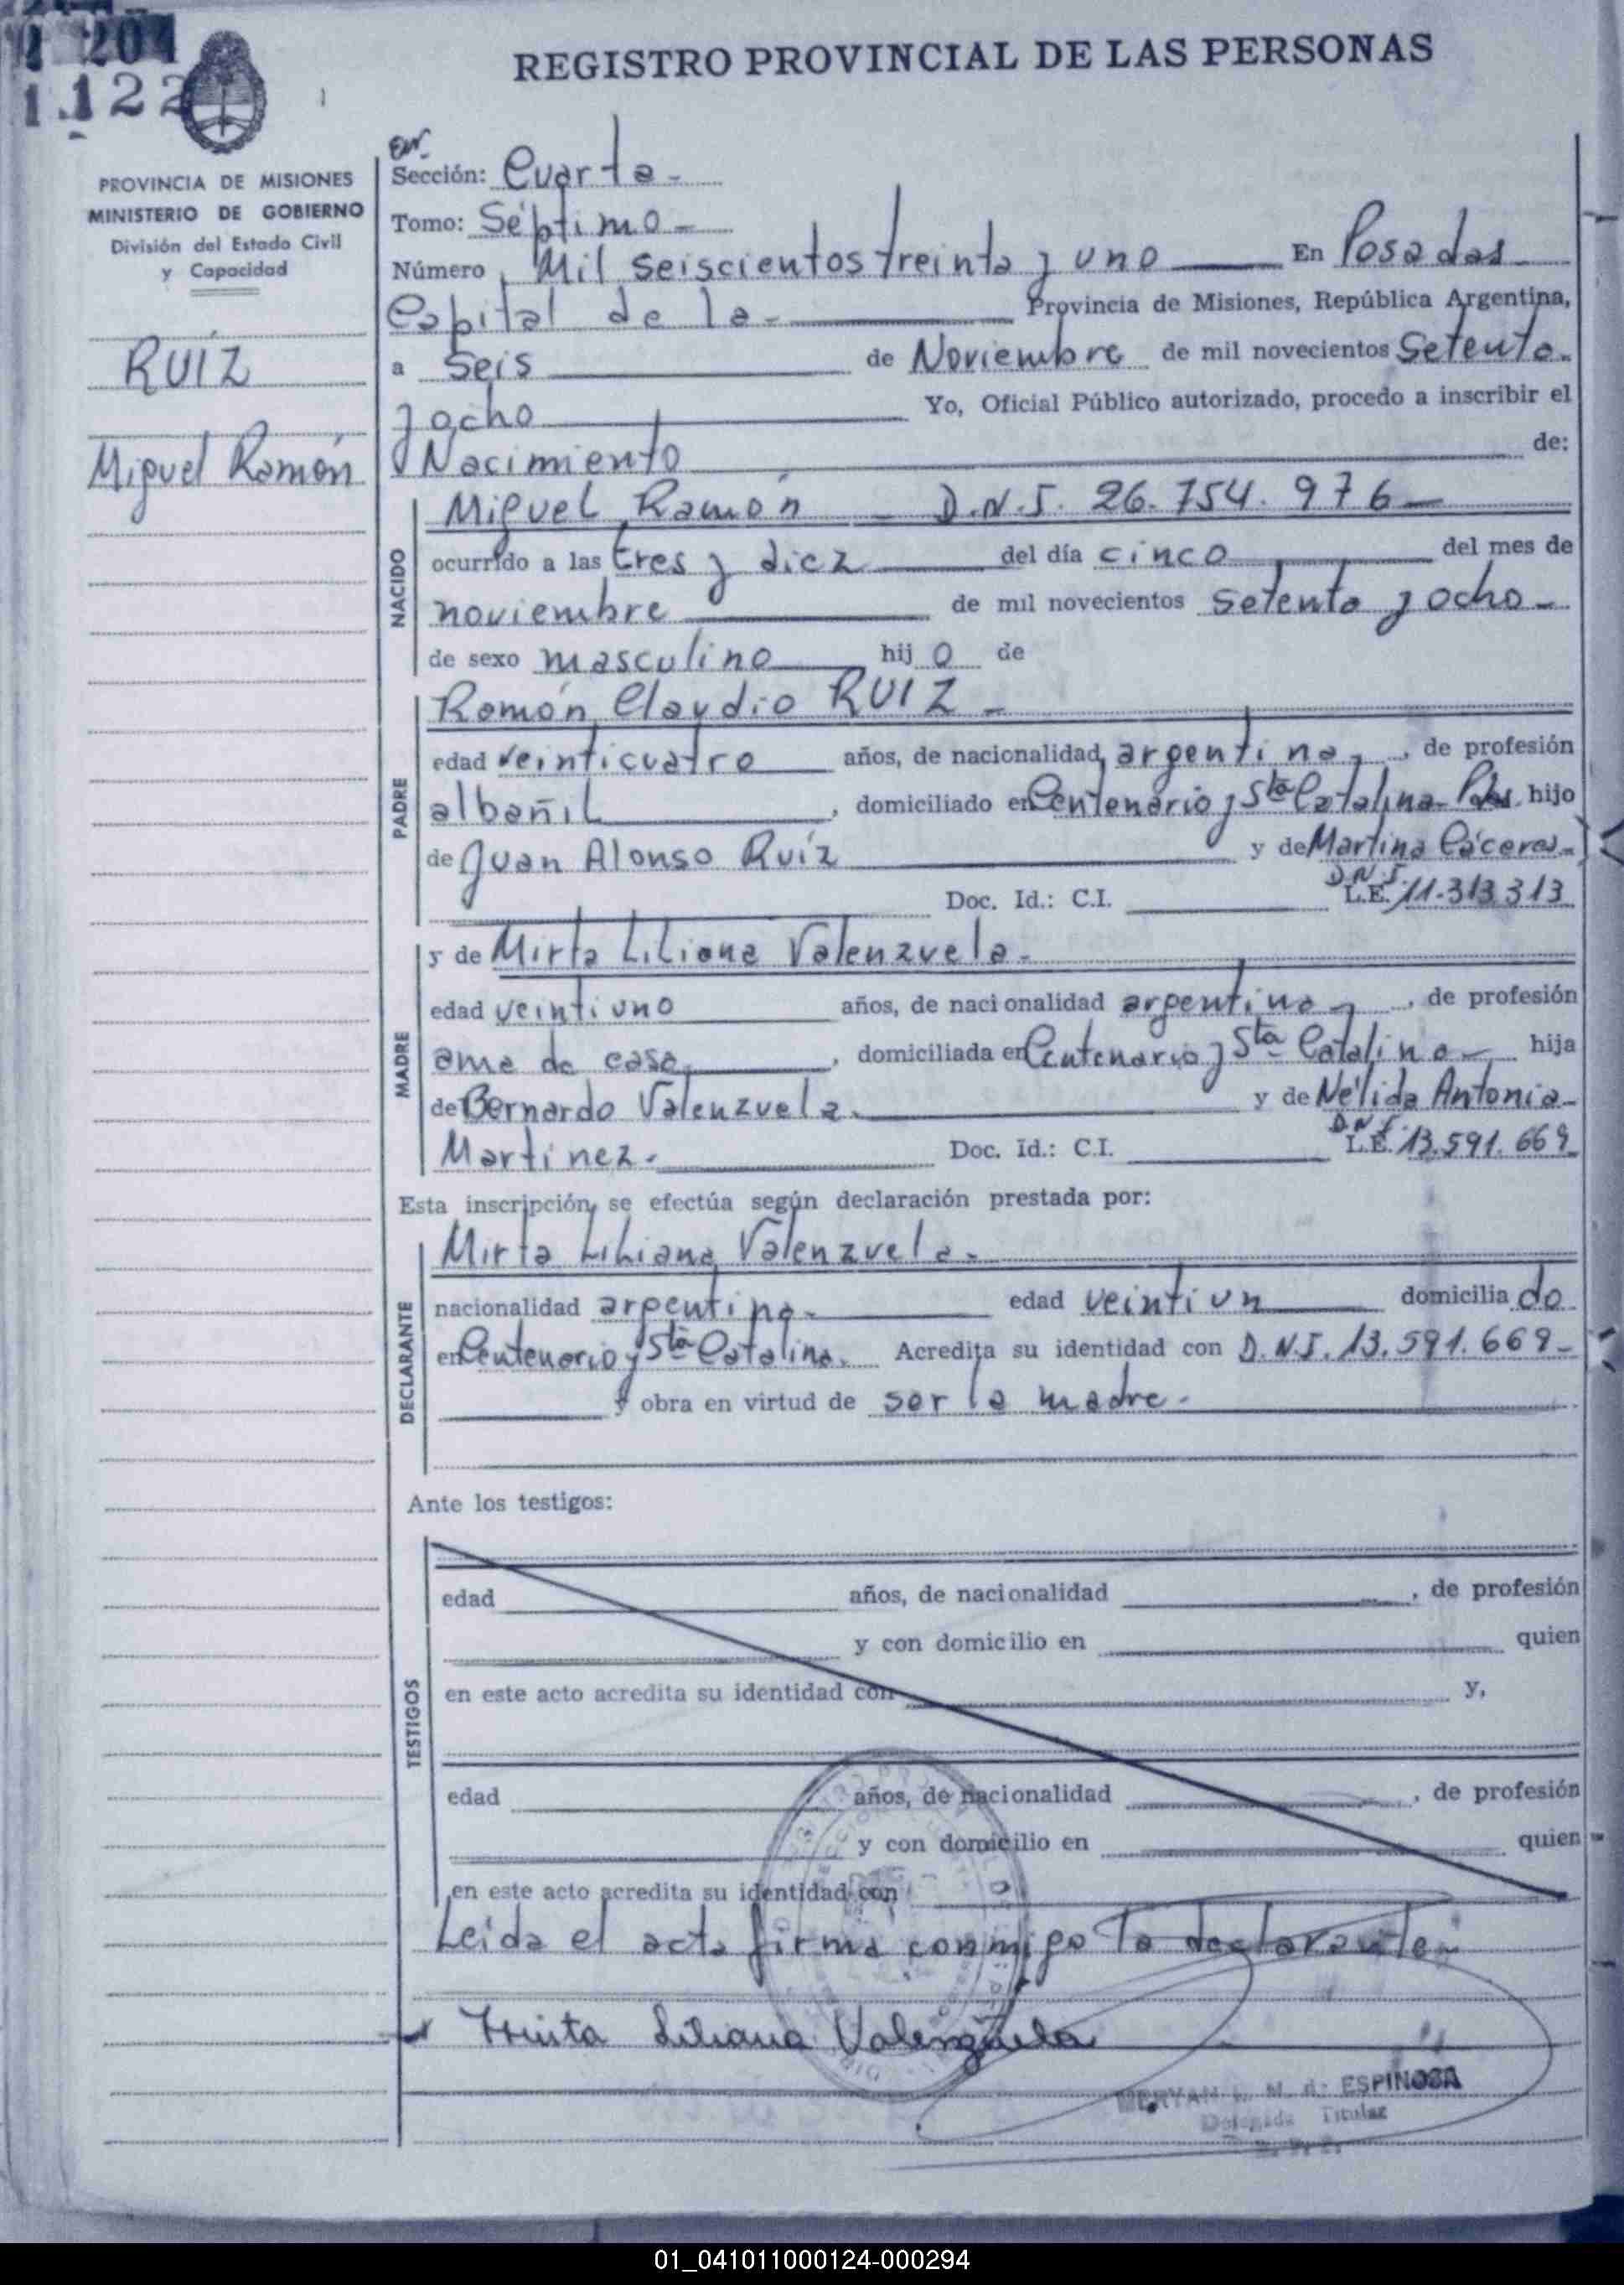 1.122
REGISTRO PROVINCIAL DE LAS PERSONAS
PROVINCIA DE MISIONES
MINISTERIO DE GOBIERNO
División del Estado Civil
y Capacidad
RUIZ
Miguel Ramón
Sección: Cuarta -
Tomo: Séptimo -
Número Mil seiscientos treinta y uno En Posadas
Capital de la - Provincia de Misiones, República Argentina,
a Seis de Noviembre de mil novecientos Setenta
y ocho Yo, Oficial Público autorizado, procedo a inscribir el
Nacimiento de:
NACIDO
Miguel Ramón - D.N.I. 26.754.976 -
ocurrido a las tres y diez del día cinco del mes de
noviembre de mil novecientos setenta y ocho -
de sexo masculino hijo de
PADRE
Ramón Claudio RUIZ -
edad veinticuatro años, de nacionalidad argentina, de profesión
albañil, domiciliado en Centenario y Sta Catalina - Pdas. hijo
de Juan Alonso Ruíz y de Martina Cáceres -
D.N.I.
Doc. Id.: C.I. L.E. 11.313.313
MADRE
y de Mirta Liliana Valenzuela -
edad veintiuno años, de nacionalidad argentina, de profesión
ama de casa, domiciliada en Centenario y Sta Catalina - hija
de Bernardo Valenzuela. y de Nélida Antonia -
D.N.I.
Martinez. Doc. Id.: C.I. L.E. 13.591.669
Esta inscripción se efectúa según declaración prestada por:
DECLARANTE
Mirta Liliana Valenzuela -
nacionalidad argentina - edad veintiun domiciliado
en Centenario y Sta Catalina. Acredita su identidad con D.N.I. 13.591.669 -
y obra en virtud de ser la madre -
Ante los testigos:
TESTIGOS
edad años, de nacionalidad , de profesión
y con domicilio en quien
en este acto acredita su identidad con y,
edad años, de nacionalidad , de profesión
y con domicilio en quien
en este acto acredita su identidad con
Leída el acta firma conmigo la declarante -
Mirta Liliana Valenzuela
M. de ESPINOSA
Delegada Titular
01_041011000124-000294